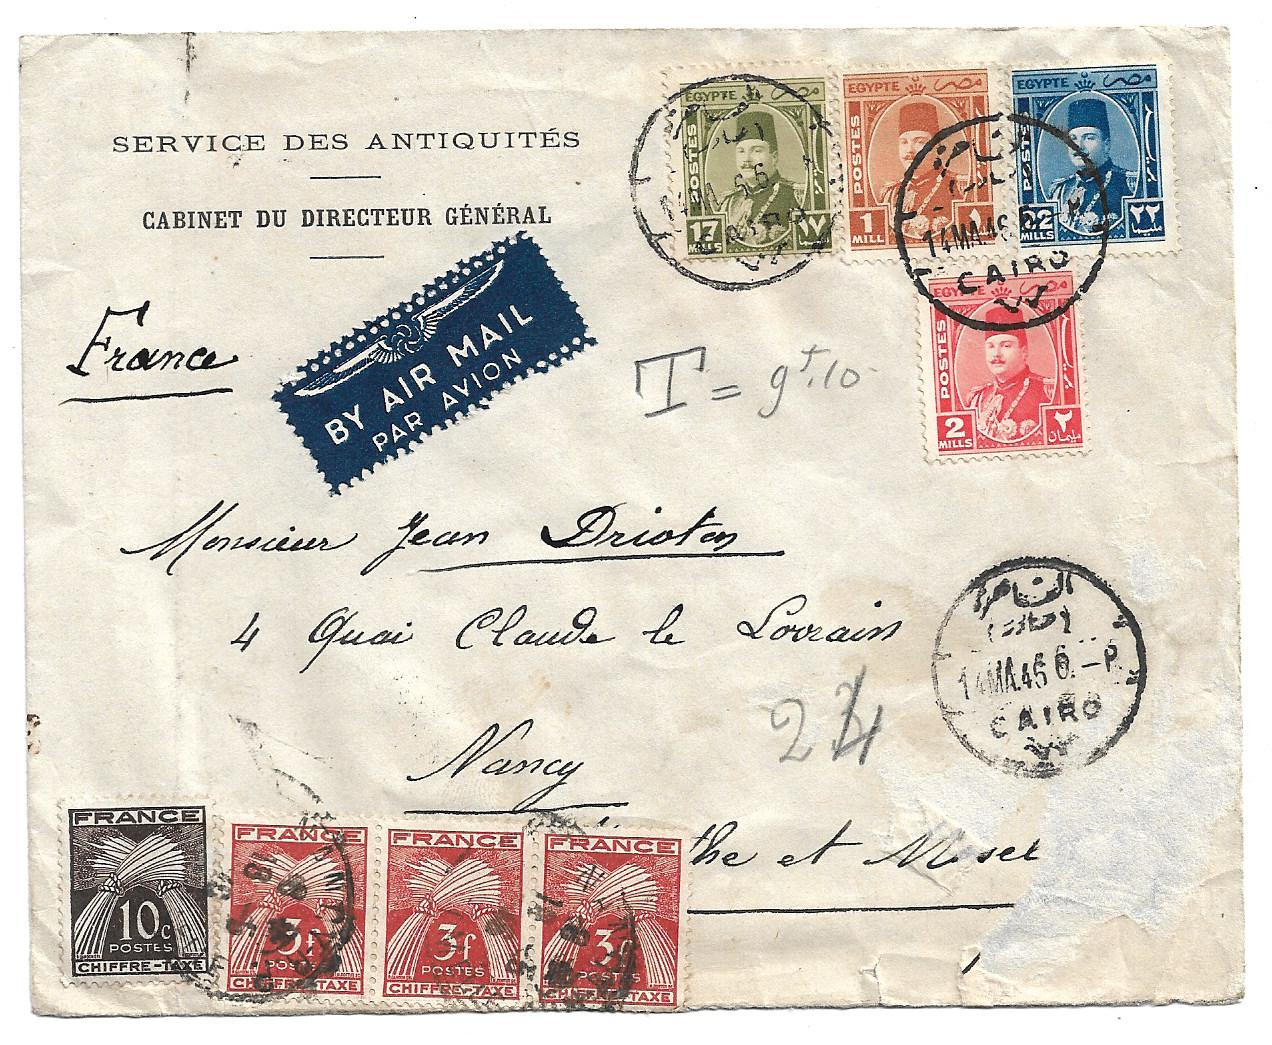 SERVICE DES ANTIQUITÉS
CABINET DU DIRECTEUR GÉNÉRAL
France
BY AIR MAIL
PAR AVION
EGYPTE مصر
POSTES
17 ١٧
MILLS
EGYPTE مصر
POSTES
1 ١
MILL
EGYPTE مصر
22 ٢٢
MILLS
CAIRO
14 MA. 46
CAIRO
EGYPTE مصر
POSTES
2 ٢
MILLS مليمان
T = 9f.10
Monsieur Jean Drioton
4 Quai Claude le Lorrain
Nancy
the et Mosel
24
القاهرة
14 MA. 46 6 - P
CAIRO
FRANCE
10c
POSTES
CHIFFRE-TAXE
FRANCE
3f
POSTES
CHIFFRE-TAXE
FRANCE
3f
POSTES
CHIFFRE-TAXE
FRANCE
3f
POSTES
CHIFFRE-TAXE